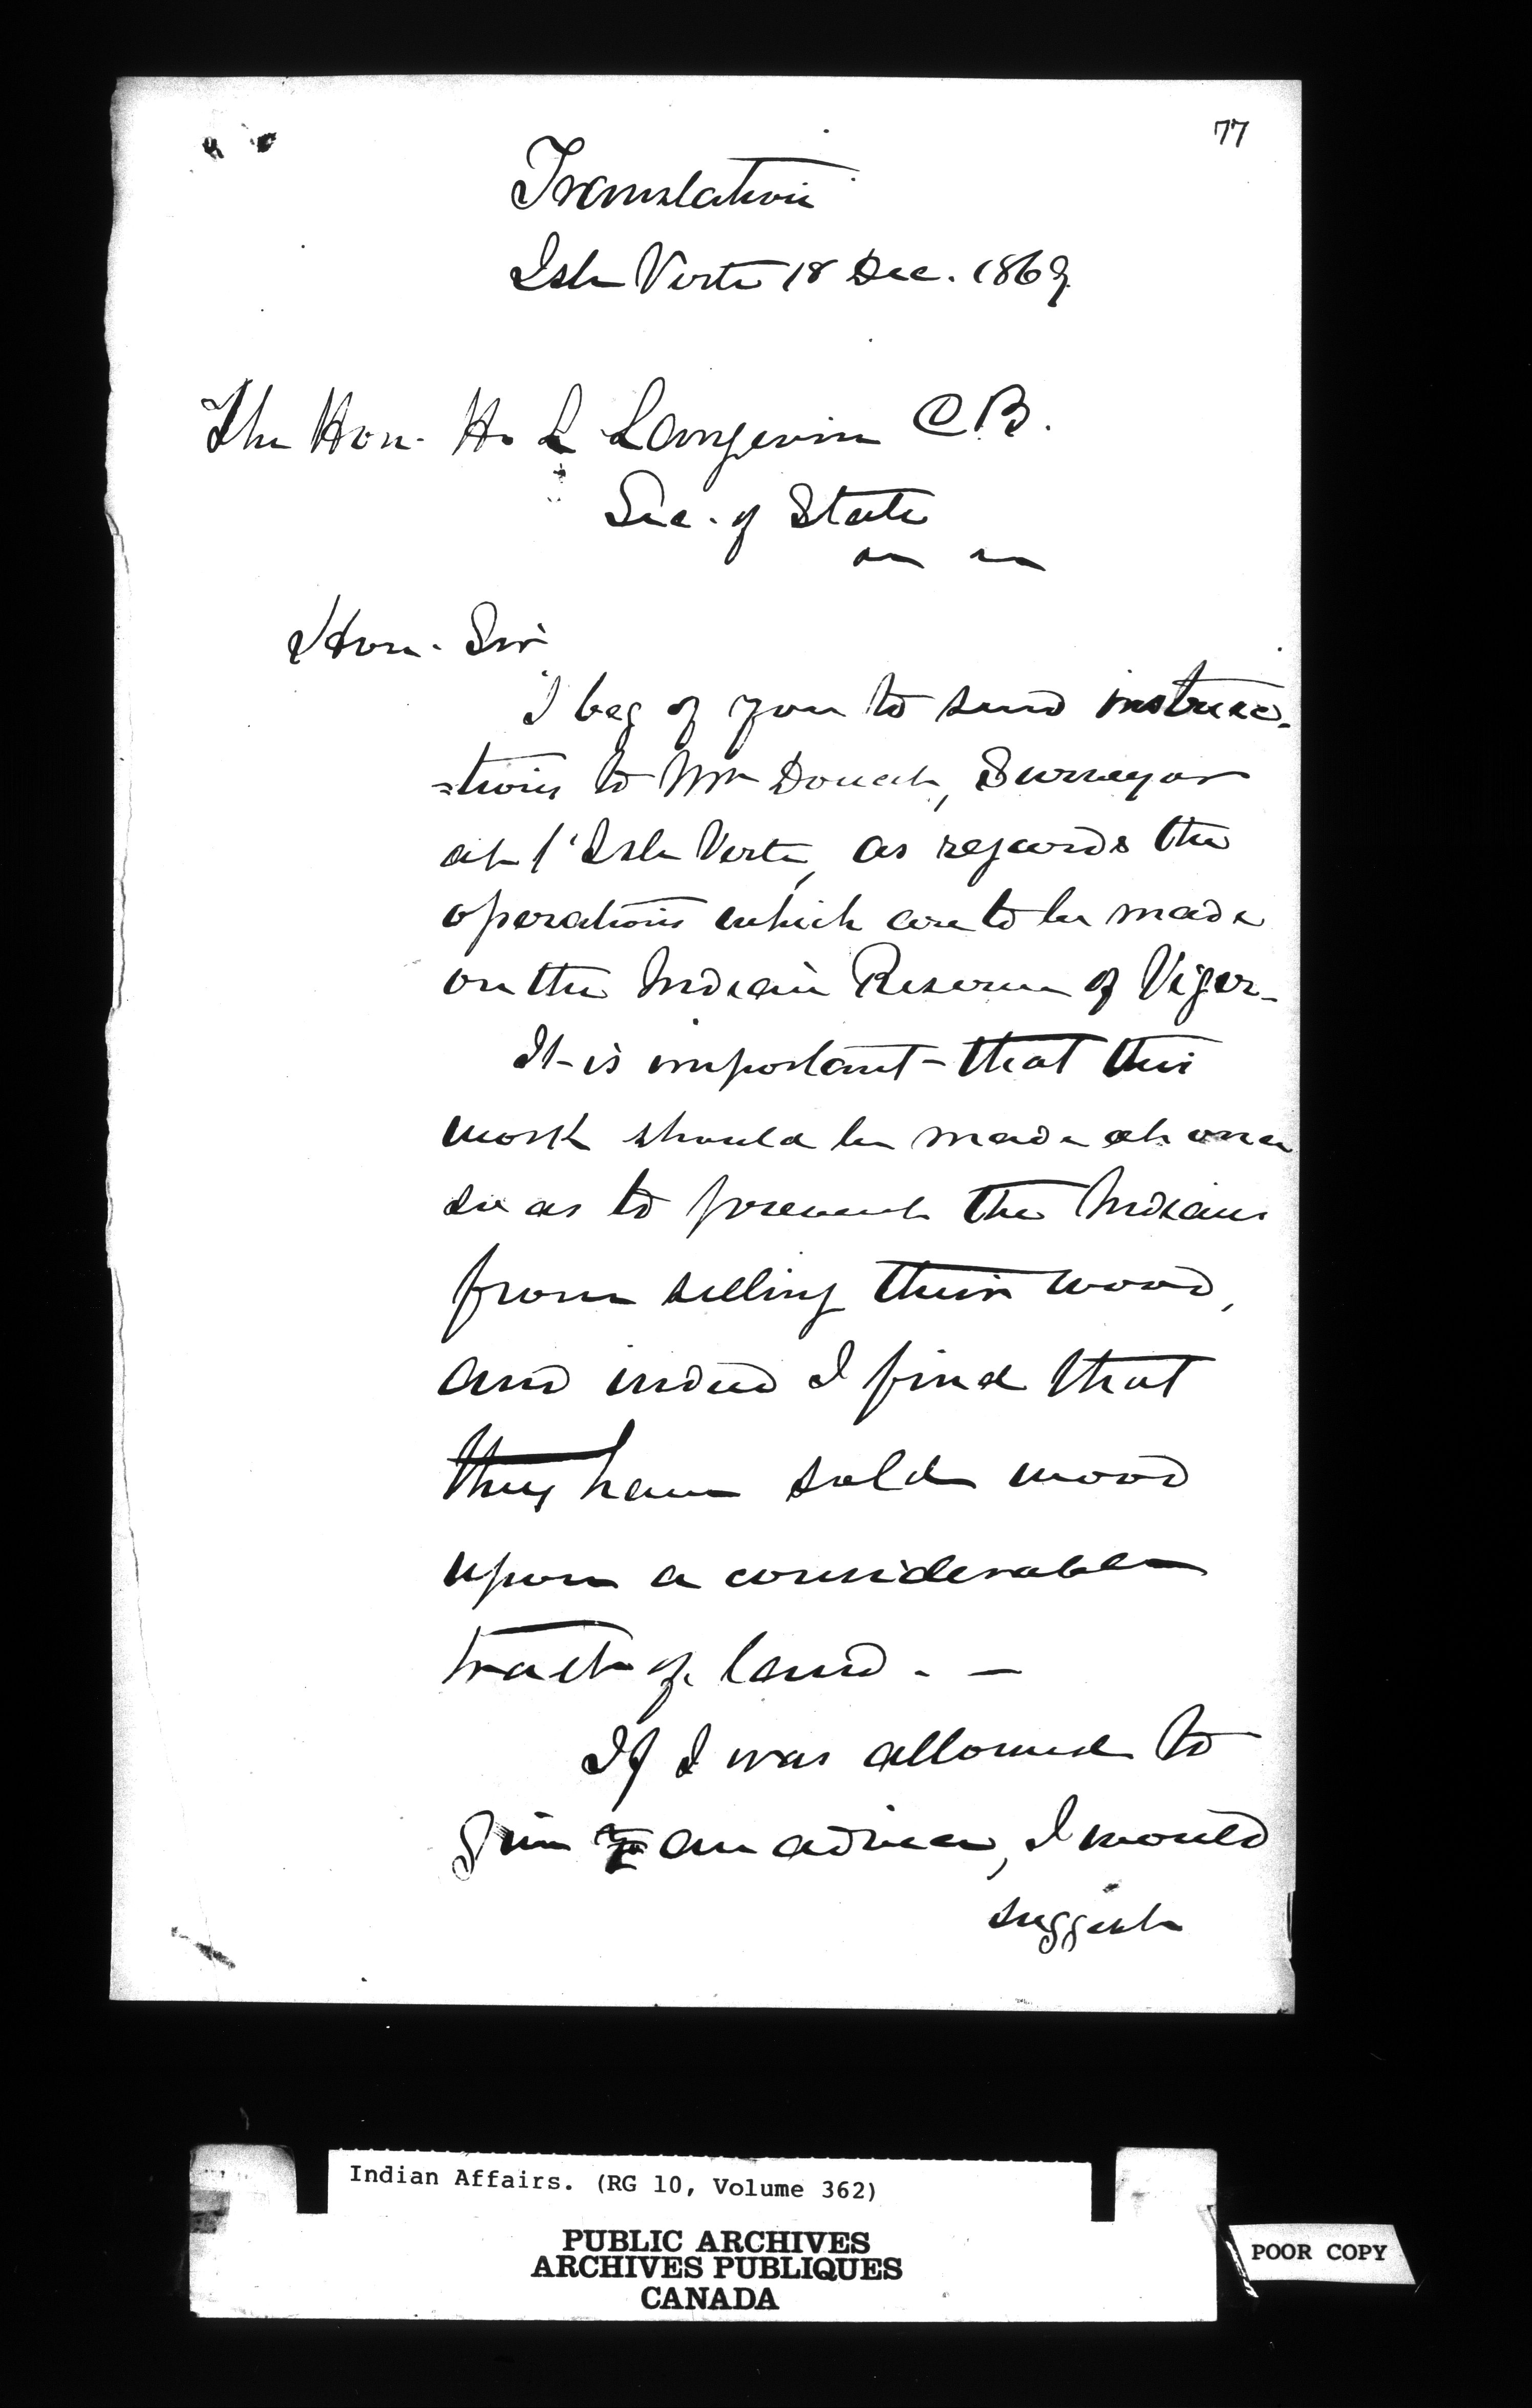 77
Translation
Isle Verte 18 Dec. 1869
The Hon. H. L Langevin C.B.
Sec. of State
Hon. Sir
I beg of you to send instruc-
=tions to Mr Douceh, Surveyor
at l'Isle Verte, as regards the
operations which are to be made
on the Indian Reserve of Viger-
It is important that this
work should be made at once
so as to prevent the Indians
from selling their wood,
and indeed I find that
they have sold wood
upon a considerable
tract of land. -
If I was allowed to
give an advice, I would
suggest
Indian Affairs. (RG 10, Volume 362)
PUBLIC ARCHIVES
ARCHIVES PUBLIQUES
CANADA
POOR COPY